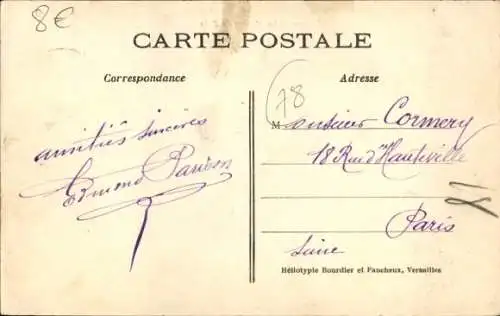 8€
CARTE POSTALE
Correspondance
Adresse
78
Monsieur Cormery
amitiés sincères
18 Rue d'Hauteville
Edmond
Paris
Seine
Héliotypie Bourdier et Faucheux, Versailles